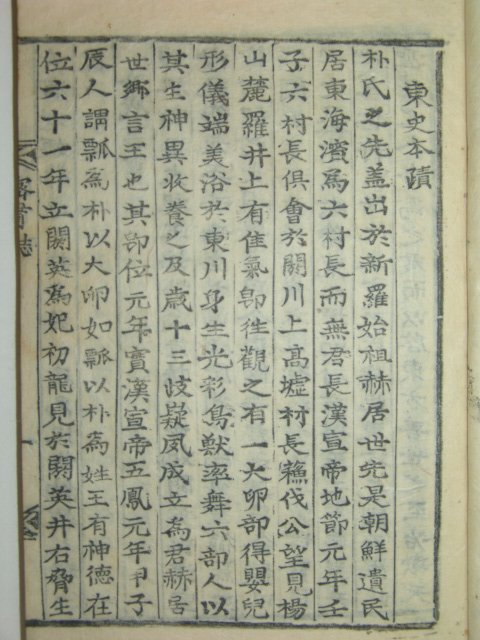 東史本蹟
朴氏之先盖出於新羅始祖赫居世先是朝鮮遺民
居東海濱爲六村長而無君長漢宣帝地節元年壬
子六村長俱會於閼川上高墟村長蘓伐公望見楊
山麓羅井上有佳氣卽徃觀之有一大卵部得嬰兒
形儀端美浴於東川身生光彩鳥獸率舞六部人以
其生神異收養之及歲十三岐疑夙成立為君赫居
世鄉言王也其卽位元年實漢宣帝五鳳元年甲子
辰人謂瓢為朴以大卵如瓢以朴為姓王有神德在
位六十一年立閼英為妃初龍見於閼英井右脅生
誌
一